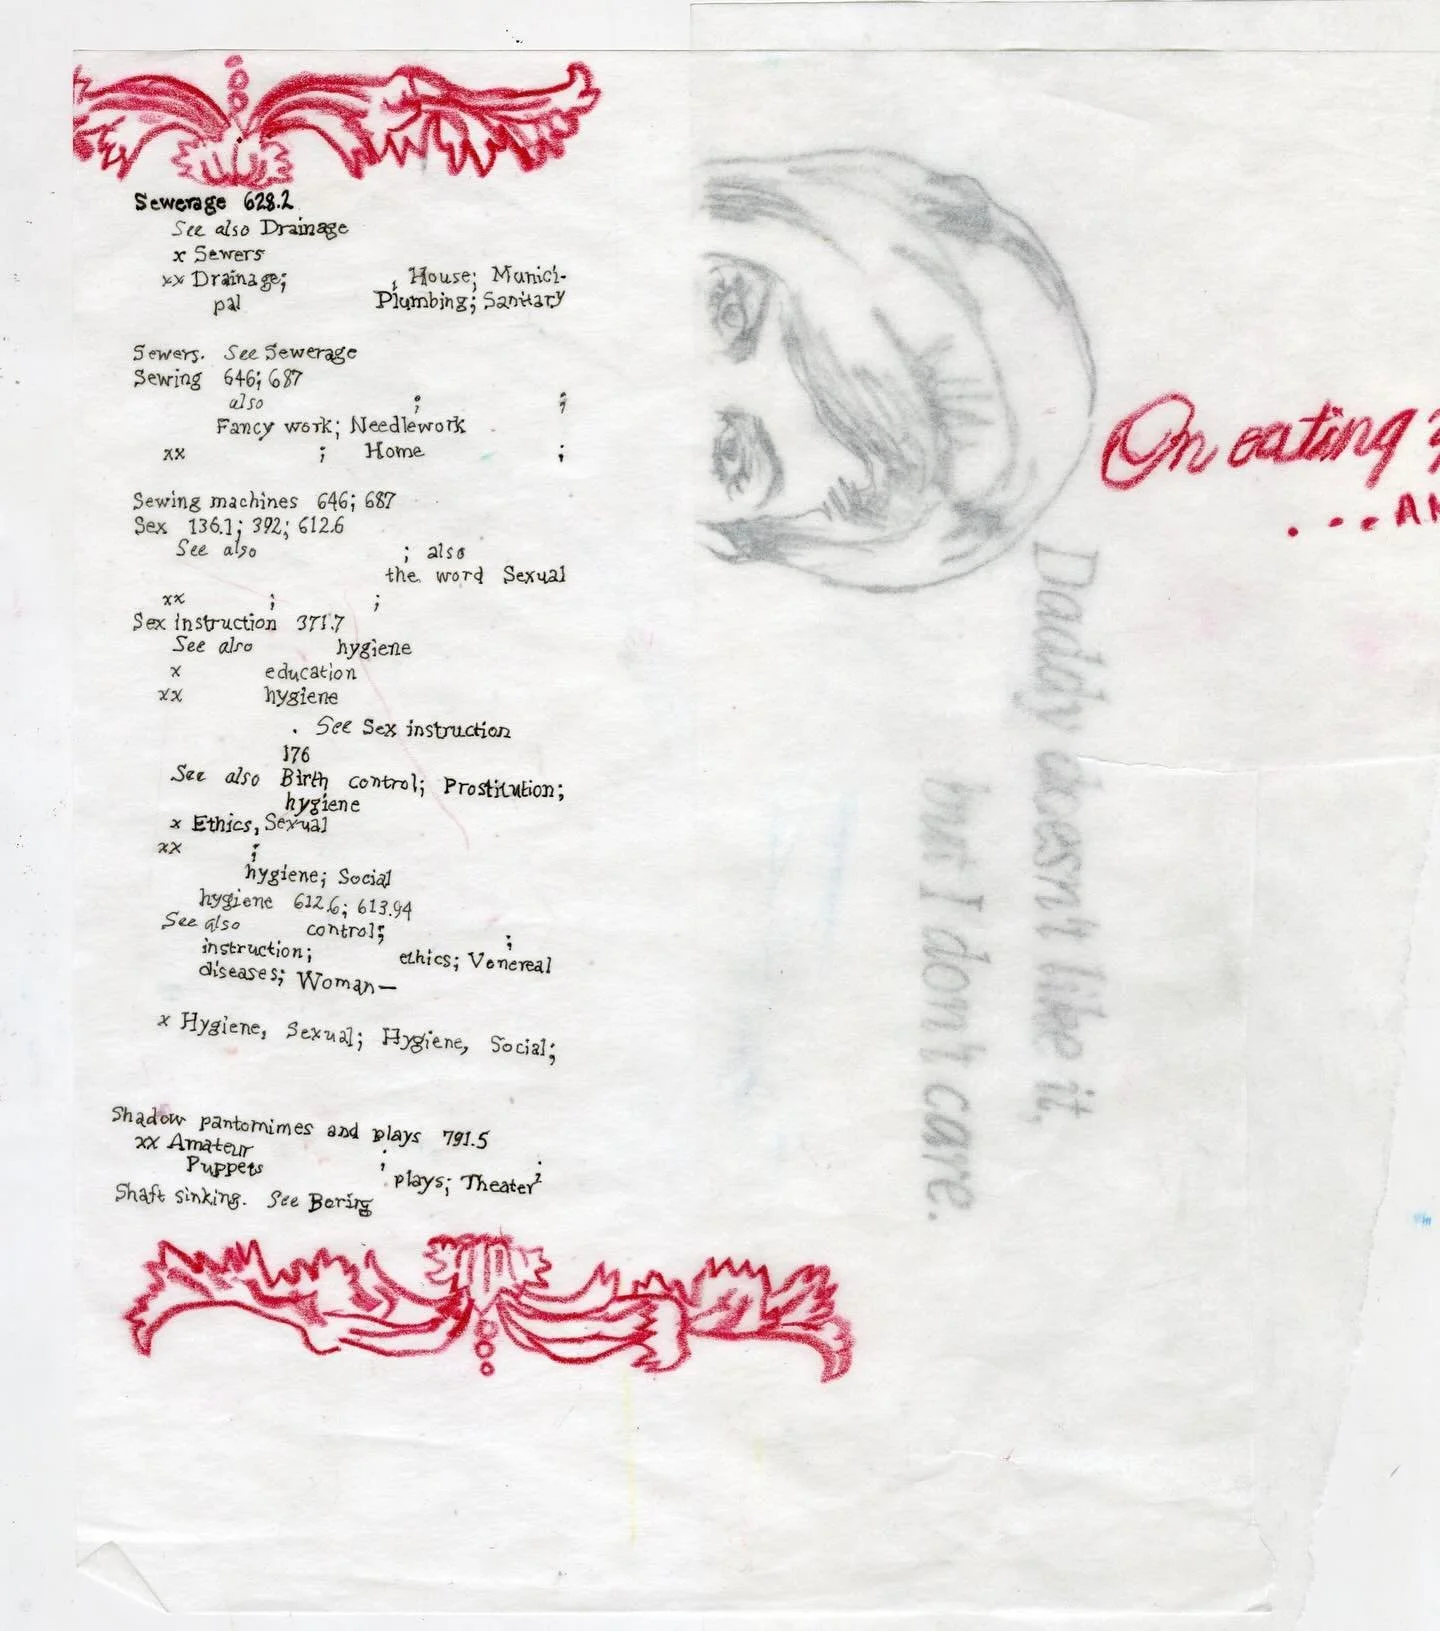 Sewerage 628.2
See also Drainage
x Sewers
xx Drainage; , House; Munici-
pal Plumbing; Sanitary
Sewers. See Sewerage
Sewing 646; 687
also ; ;
Fancy work; Needlework
xx ; Home ;
Sewing machines 646; 687
Sex 136.1; 392; 612.6
See also ; also
the word Sexual
xx ; ;
Sex instruction 371.7
See also hygiene
x education
xx hygiene
. See Sex instruction
176
See also Birth control; Prostitution;
hygiene
x Ethics, Sexual
xx ;
hygiene; Social
hygiene 612.6; 613.94
See also control; ;
instruction; ethics; Venereal
diseases; Woman—
x Hygiene, Sexual; Hygiene, Social;
Shadow pantomimes and plays 791.5
xx Amateur ; .
Puppets , plays; Theater
Shaft sinking. See Boring
Daddy doesn't like it,
but I don't care.
On eating
...